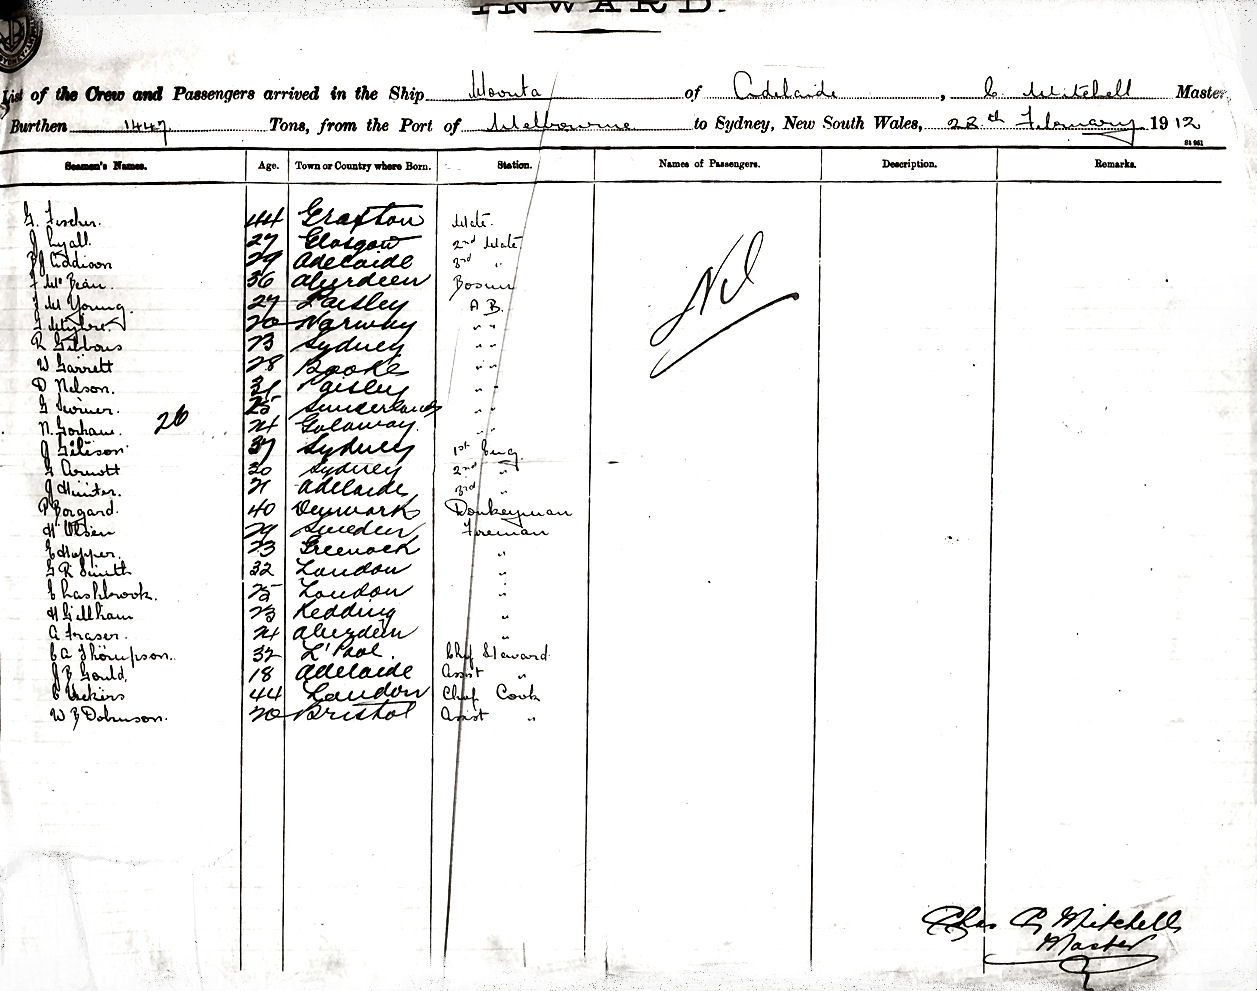 INWARD.
List of the Crew and Passengers arrived in the Ship Moonta of Adelaide, C. Mitchell Master,
Burthen 1447 Tons, from the Port of Melbourne to Sydney, New South Wales, 28th February 1912
Seamen's Names. Age. Town or Country where Born. Station. Names of Passengers. Description. Remarks.
G. Fischer. 44 Grafton Mate.
J Lyall. 27 Glasgow 2nd Mate
P J Addison 29 Adelaide 3rd "
J McBean. 36 Aberdeen Bosun
J M Young. 27 Paisley A B.
20 Norway " "
R Gibbons 23 Sydney " "
W Garrett 28 " "
D Nelson. 31 Paisley " "
G 25 Sunderland " "
N. Gorham. 24 Galaway. " "
26
J 37 Sydney 1st Eng.
G Arnott 30 Sydney 2nd "
J Hunter. 21 Adelaide 3rd "
P Borgard. 40 Denmark Donkeyman
H Olsen 29 Sweden Fireman
E Hopper. 23 Greenock "
G R Smith 32 London "
E Lashbrook. 25 London "
H Gillham 23 Redding "
A Fraser. 24 Aberdeen "
C A Thompson. 32 L'Pool. Chf Steward
J B Gould, 18 Adelaide Assist "
C Vickers 44 London Chef Cook
W J Dobinson. 20 Bristol Assist "
Nil
Chas Mitchell
Master